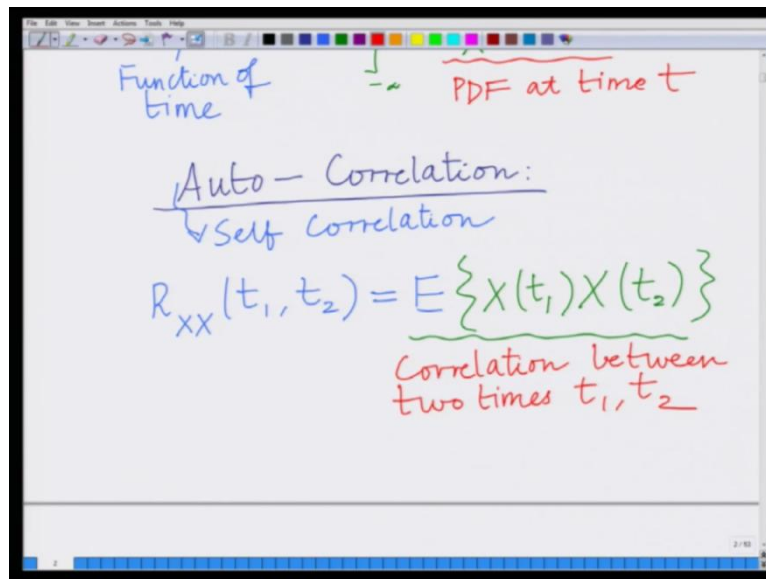 File Edit View Insert Actions Tools Help
B I
Function of
time
-∞
PDF at time t
Auto - Correlation:
Self Correlation
R_XX(t₁, t₂) = E{X(t₁)X(t₂)}
Correlation between
two times t₁, t₂
2 / 53
2